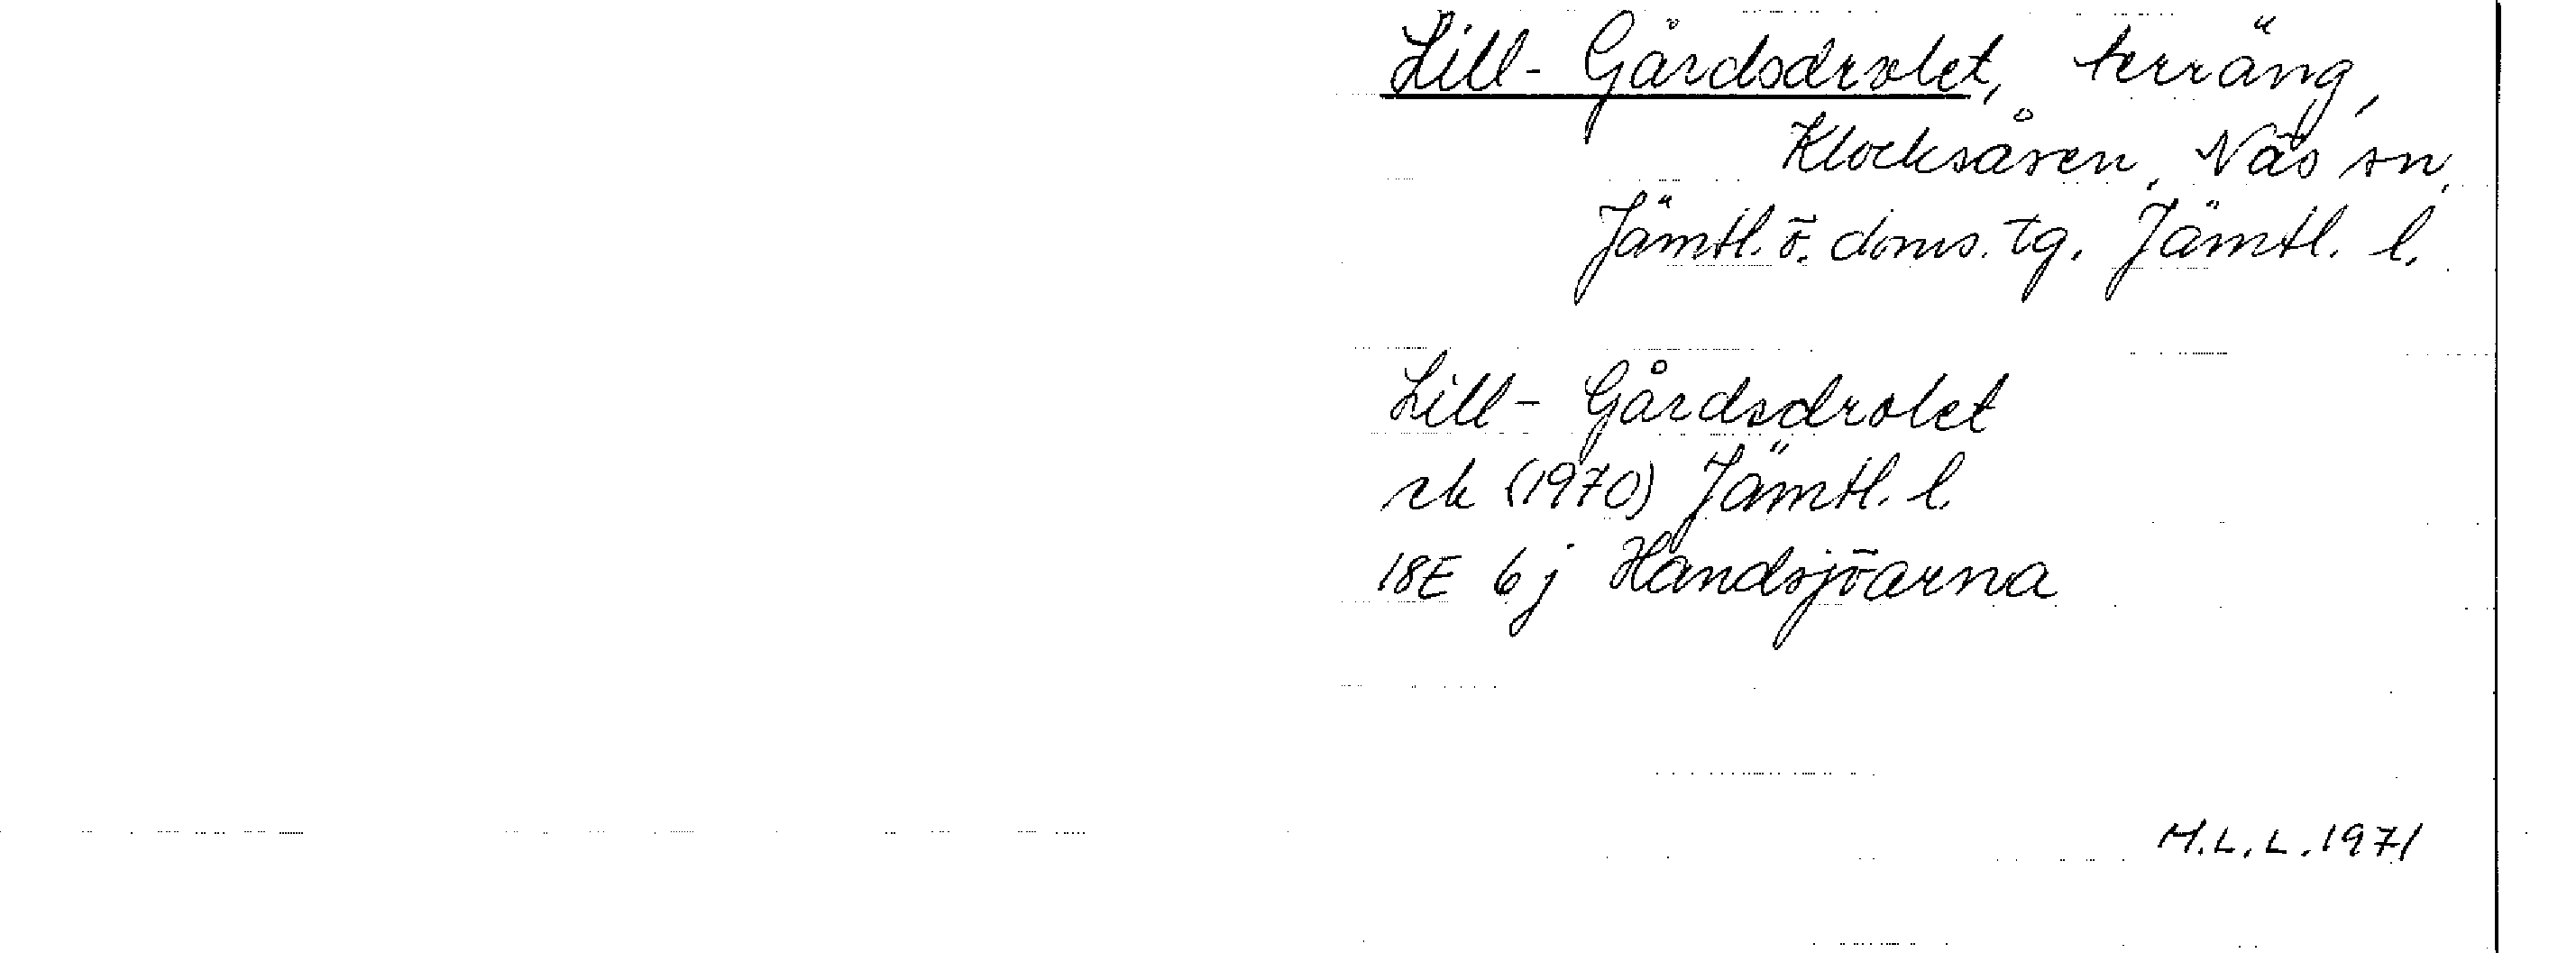 Lill-Gårdsdrolet, terräng,
Klocksåsen, Näs sn,
Jämtl. ö. doms. tg. Jämtl. l.
Lill-Gårdsdrolet
rk (1970) Jämtl. l.
18E 6 j Handsjöarna
H.L.L. 1971